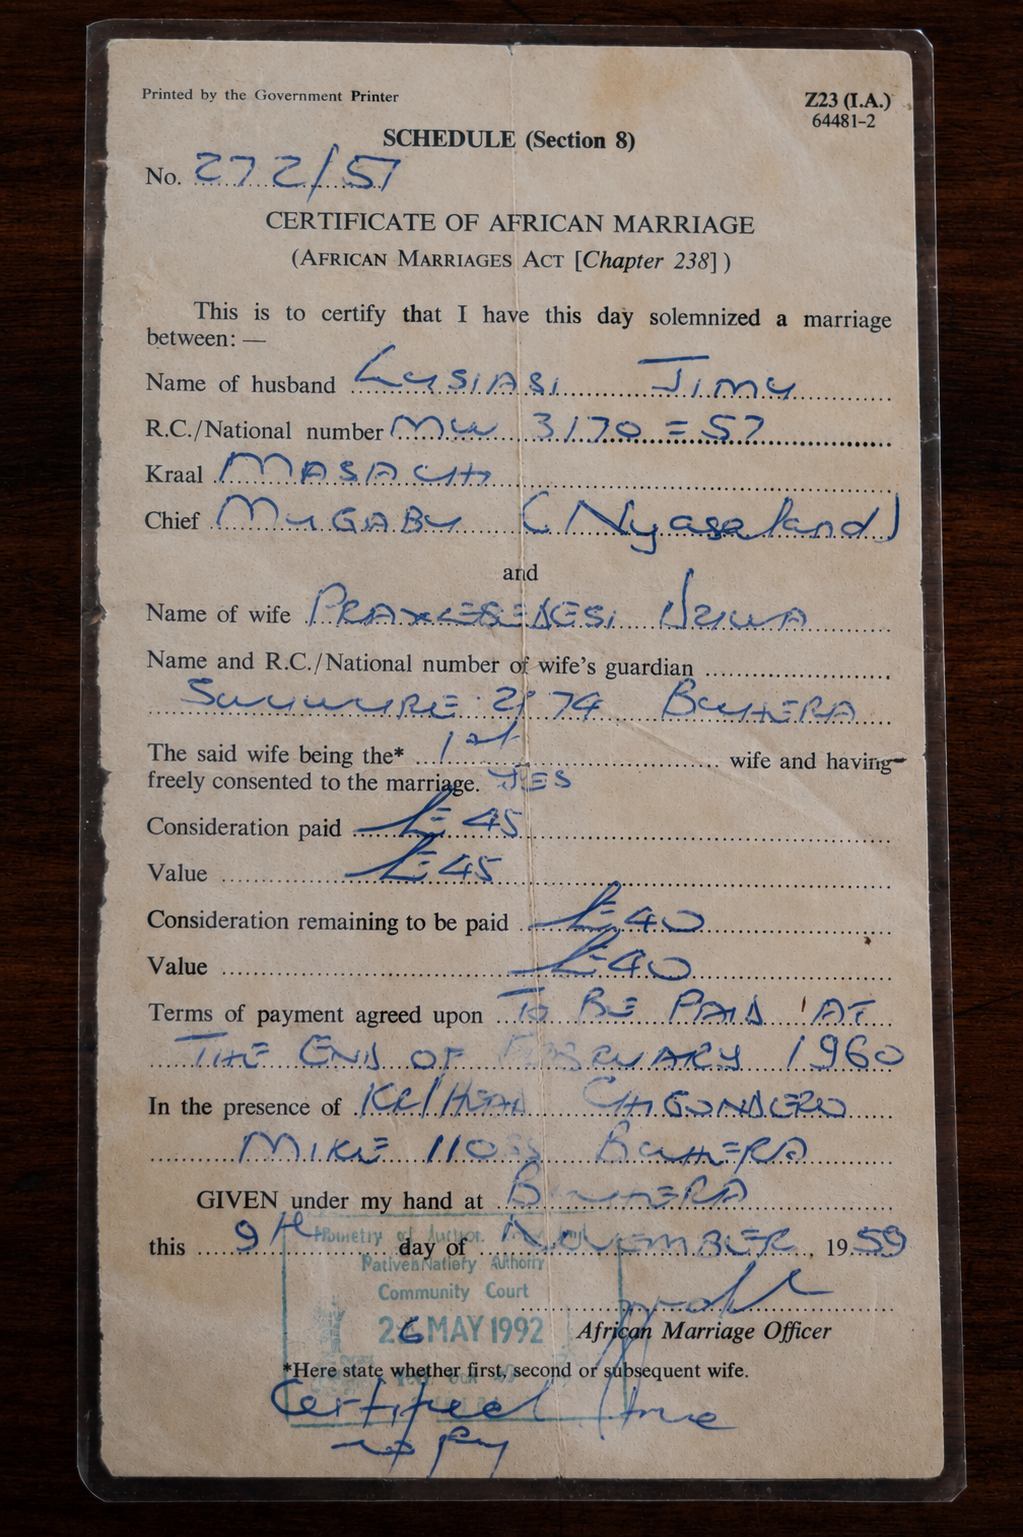 Printed by the Government Printer
Z23 (I.A.)
64481-2
SCHEDULE (Section 8)
No. 272/57
CERTIFICATE OF AFRICAN MARRIAGE
(AFRICAN MARRIAGES ACT [Chapter 238])
This is to certify that I have this day solemnized a marriage
between: —
Name of husband LUSIASI JIMU
R.C./National number MW 3170 = 57
Kraal MASACHI
Chief MUGABU (Nyasaland)
and
Name of wife
Name and R.C./National number of wife's guardian
2174 BUHERA
The said wife being the* 1st wife and having
freely consented to the marriage. YES
Consideration paid £45
Value £45
Consideration remaining to be paid £40
Value £40
Terms of payment agreed upon TO BE PAID AT
THE END OF FEBRUARY 1960
In the presence of KR/HEAD CHIGONDERO
MIKE BUHERA
GIVEN under my hand at BUHERA
this 9th day of NOVEMBER, 1959
Community Court
26 MAY 1992
African Marriage Officer
*Here state whether first, second or subsequent wife.
Certified true
copy